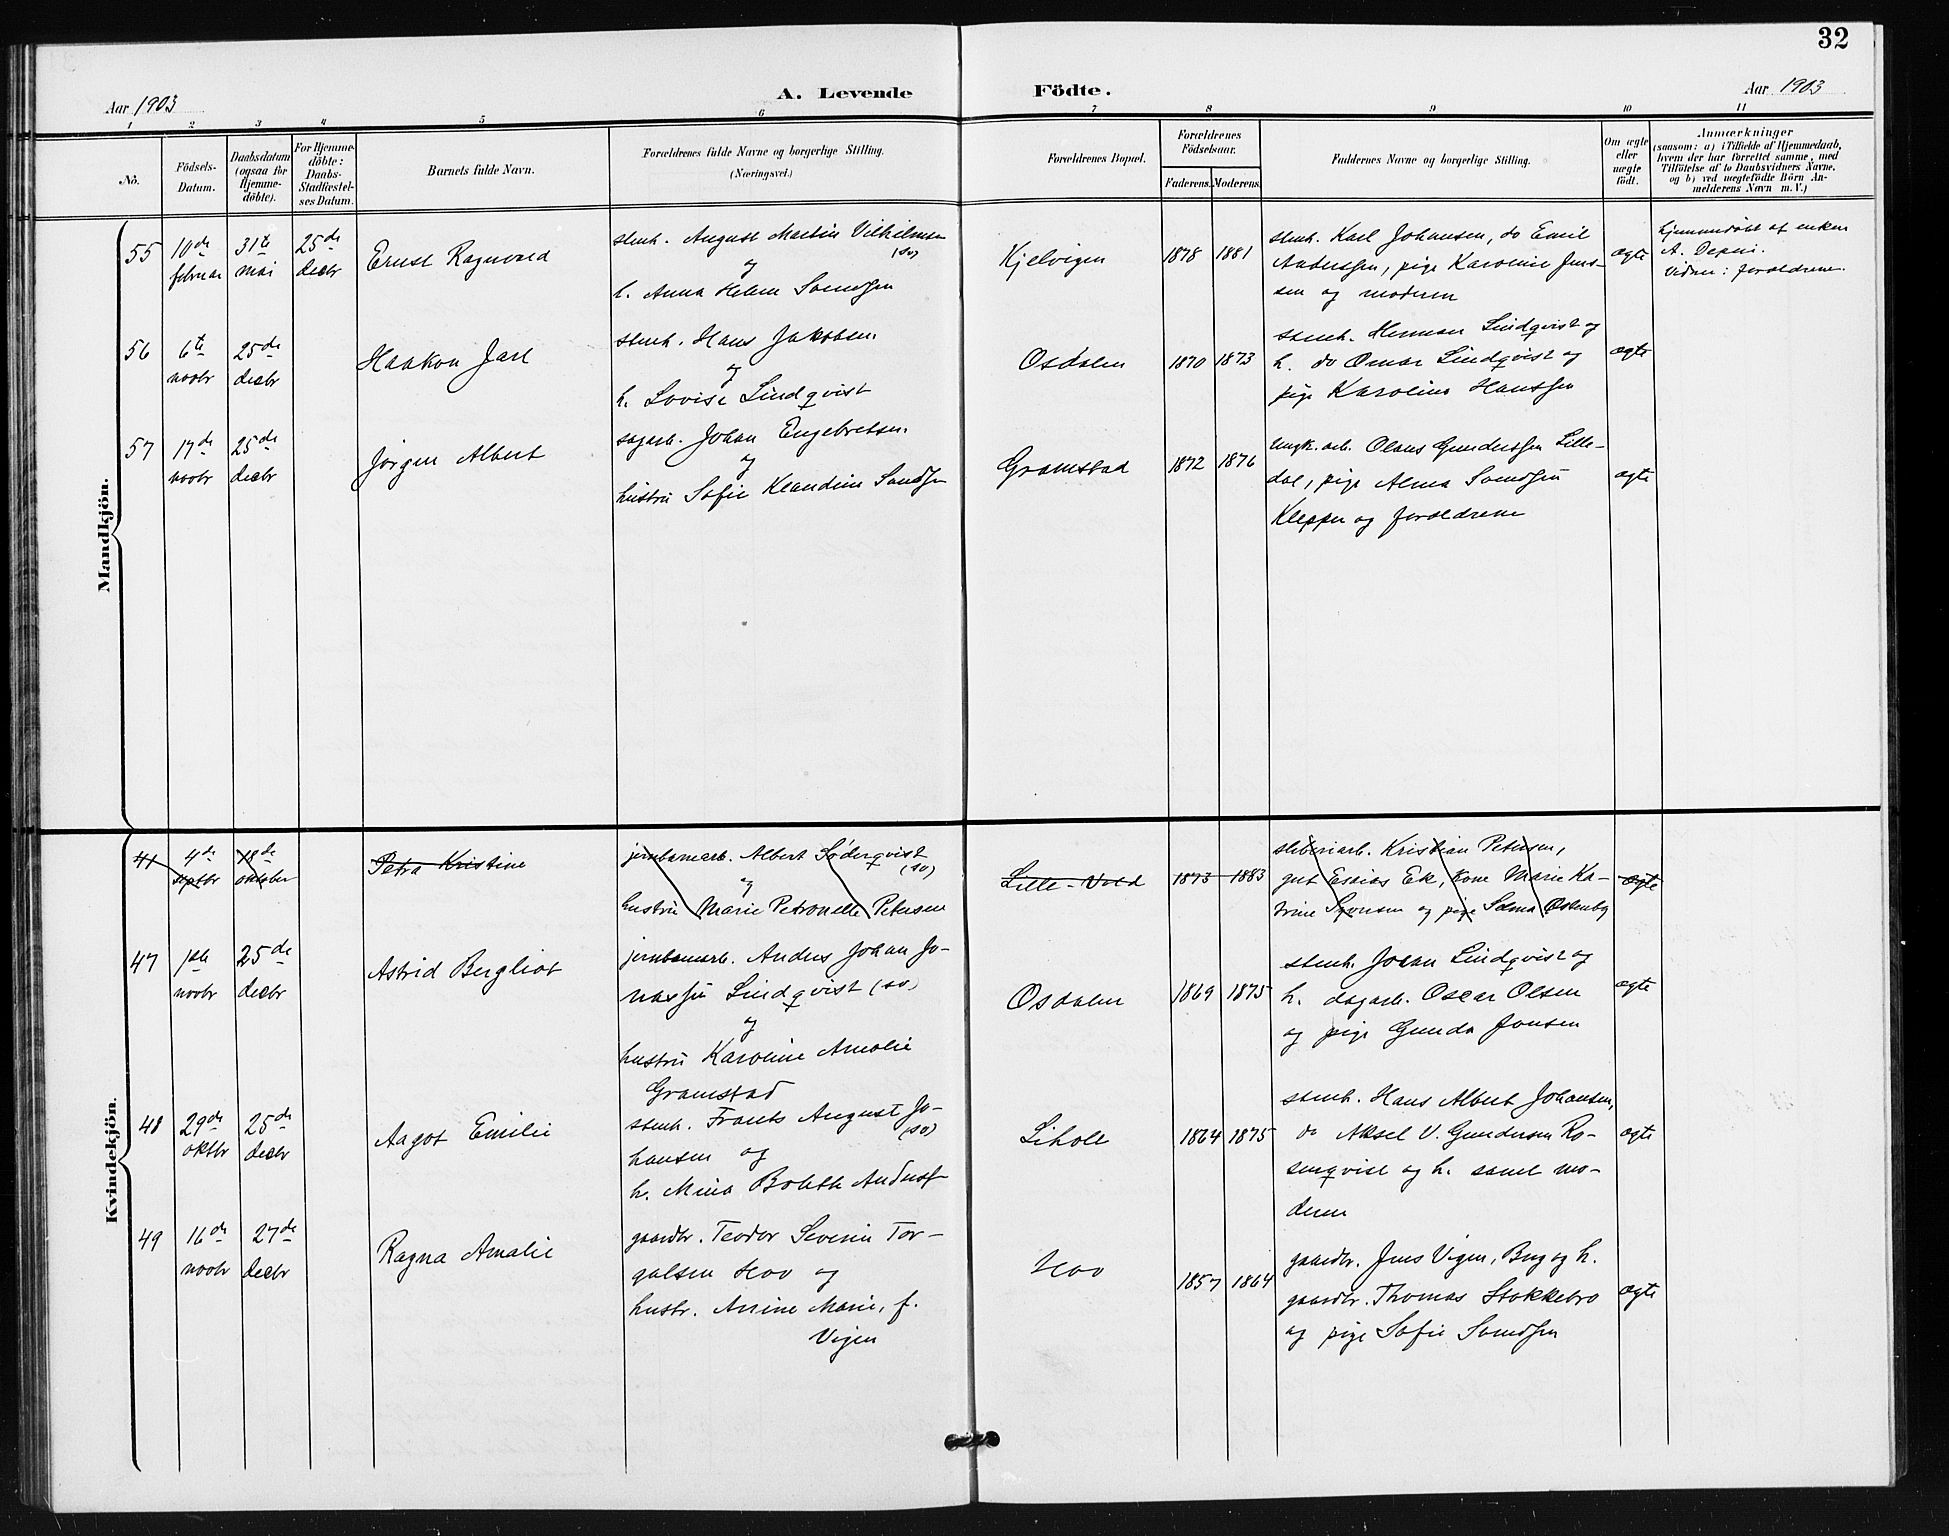 32
Aar 1903
A. Levende Födte.
Aar 1903
1 2 3 4 5 6 7 8 9 10 11
No.
Födsels-
Datum.
Daabsdatum
(ogsaa for
Hjemme-
döbte).
For Hjemme-
döbte:
Daabs-
Stadfæstel-
ses Datum.
Barnets fulde Navn.
Forældrenes fulde Navne og borgerlige Stilling.
(Næringsvei.)
Forældrenes Bopæl.
Forældrenes
Födselsaar.
Faderens. Moderens.
Faddernes Navne og borgerlige Stilling.
Om ægte
eller
uægte
födt.
Anmærkninger
(saasom: a) i Tilfælde af Hjemmedaab,
hvem der har forrettet samme, med
Tilföielse af to Daabsvidners Navne,
og b) ved uægtefödte Börn An-
melderens Navn m. V.)
Mandkjön.
55
10de
februar
31te
mai
25de
decbr
Ernst Ragnvald
stenh. August Martin Vilhelmsen
(sv)
og
h. Anna Helene Svendsen
Kjelvigen
1878 1881
stenh. Karl Johansen, do Emil
Anderssen, pige Karoline Jens-
sen og moderen
ægte
hjemmedøbt af enken
A. Deperi.
Vidner: forældrene.
56
6te
novbr
25de
decbr
Haakon Jarl
stenh. Hans Jakobsen
og
h. Lovise Lindqvist
Osdalen
1870 1873
stenh. Herman Lindqvist og
h. do Omar Lindqvist og
pige Karoline Hanssen
ægte
57
17de
novbr
25de
decbr
Jørgen Albert
sagarb. Johan Engebretsen
og
hustru Sofie Klaudine Sandsen
Gramstad
1872 1876
ungk. arb. Olaus Gunderssen Lille-
dal, pige Alma Svendsen
Kleppen og forældrene
ægte
Kvindekjön.
41
4de
septbr
18de
oktober
Petra Kristine
jernbanearb. Albert Söderqvist
(sv)
og
hustru Marie Petronelle Petersen
Lille-Vold
1873 1883
sliberiarb. Kristian Petersen,
gut Esaias Ek, kone Marie Ka-
trine Svensen og pige Selma Ostenby
ægte
47
1ste
novbr
25de
decbr
Astrid Bergliot
jernbanearb. Anders Johan Jo-
nassen Lindqvist (sv)
og
hustru Karoline Amalie
Gramstad
Osdalen
1869 1875
stenh. Johan Lindqvist og
h. dagarb. Oscar Olsen
og pige Gunda Jonsen
ægte
48
29de
oktbr
25de
decbr
Aagot Emilie
stenh. Frants August Jo-
(sv)
hansen og
h. Mina Bolette Anders
Liholt
1864 1875
stenh. Hans Albert Johansen,
do Aksel V. Gundersen Ro-
senqvist og h. samt mo-
deren
ægte
49
16de
novbr
27de
decbr
Ragna Amalie
gaardbr. Teodor Severin Tor-
galsen Hov og
hustr. Anine Marie, f.
Vigen
Hov
1857 1864
gaardbr. Jens Vigen, Bug og h.
gaardbr. Thomas Stokkebro
og pige Sofie Svendsen
ægte